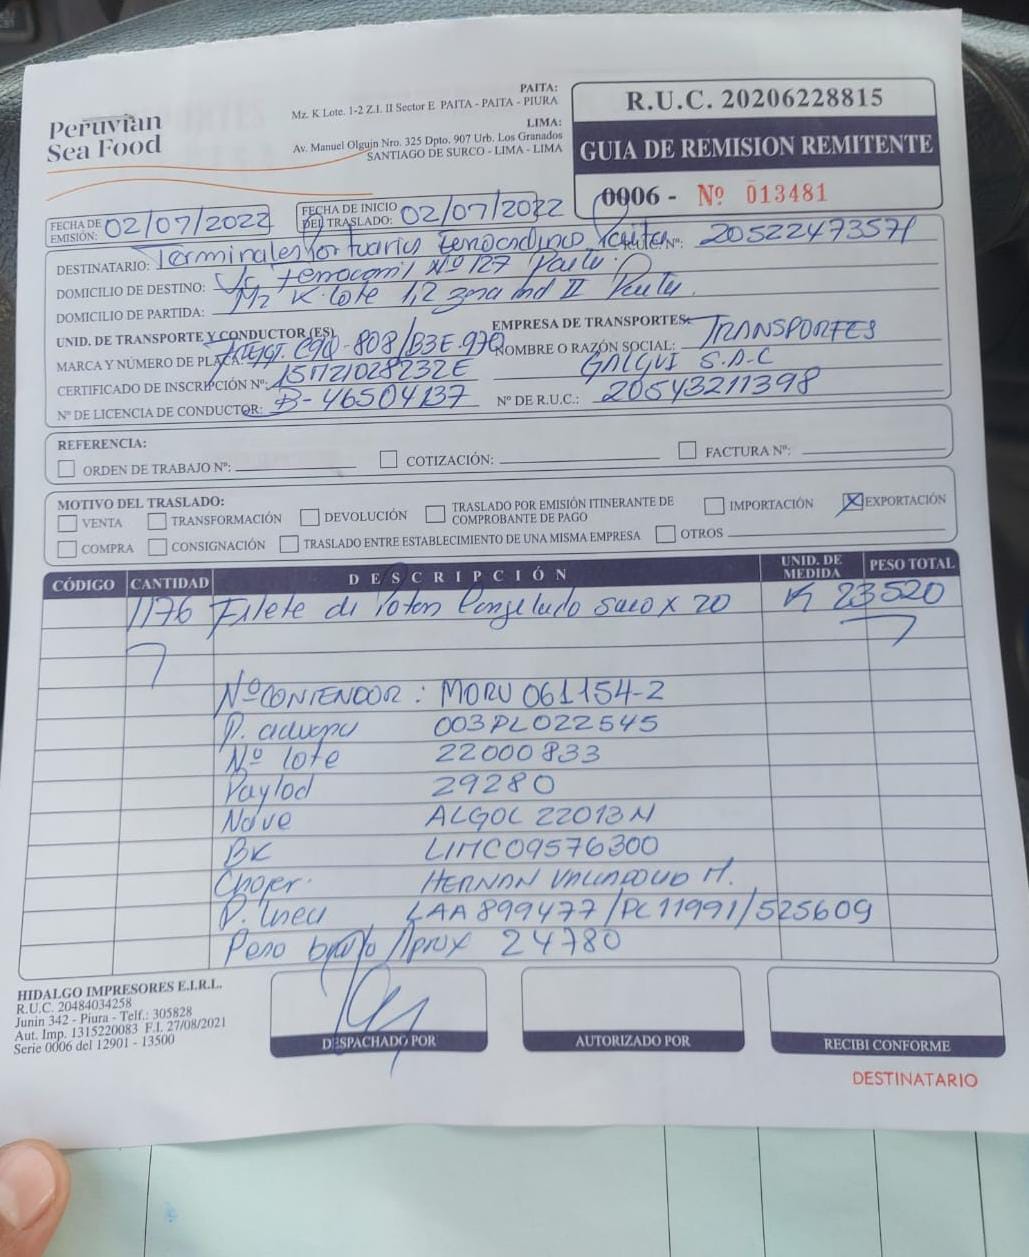 Peruvian
Sea Food
PAITA:
Mz. K Lote. 1-2 Z.I. II Sector E PAITA - PAITA - PIURA
LIMA:
Av. Manuel Olguin Nro. 325 Dpto. 907 Urb. Los Granados
SANTIAGO DE SURCO - LIMA - LIMA
R.U.C. 20206228815
GUIA DE REMISION REMITENTE
0006 - Nº 013481
FECHA DE EMISIÓN: 02/07/2022
FECHA DE INICIO DEL TRASLADO: 02/07/2022
DESTINATARIO: Terminales Portuarios Euroandinos Paita Nº: 20522473571
DOMICILIO DE DESTINO: Nº 127 Paita
DOMICILIO DE PARTIDA: Mz K lote 1,2 zona ind II Paita.
UNID. DE TRANSPORTE Y CONDUCTOR (ES)
EMPRESA DE TRANSPORTES:
MARCA Y NÚMERO DE PLACA: C9Q-808/B3E-970
NOMBRE O RAZÓN SOCIAL: TRANSPORTES
GALGUI S.A.C
CERTIFICADO DE INSCRIPCIÓN Nº: 15M21028232E
Nº DE LICENCIA DE CONDUCTOR: B-46504137
Nº DE R.U.C.: 20543211398
REFERENCIA:
ORDEN DE TRABAJO Nº:
COTIZACIÓN:
FACTURA Nº:
MOTIVO DEL TRASLADO:
VENTA
TRANSFORMACIÓN
DEVOLUCIÓN
TRASLADO POR EMISIÓN ITINERANTE DE COMPROBANTE DE PAGO
IMPORTACIÓN
EXPORTACIÓN
COMPRA
CONSIGNACIÓN
TRASLADO ENTRE ESTABLECIMIENTO DE UNA MISMA EMPRESA
OTROS
CÓDIGO CANTIDAD DESCRIPCIÓN UNID. DE MEDIDA PESO TOTAL
1176 Filete de Poton Congelado saco x 20 K 23520
Nº CONTENEDOR: MORU 061154-2
P. aduana 003PL022545
Nº lote 22000833
Paylod 29280
Nave ALGOL 22013N
BK LIMC09576300
Chofer. HERNAN VALLADOLID M.
P. linea LAA899477/PC11991/525609
Peso bruto Aprox 24780
HIDALGO IMPRESORES E.I.R.L.
R.U.C. 20484034258
Junin 342 - Piura - Telf.: 305828
Aut. Imp. 1315220083 F.I. 27/08/2021
Serie 0006 del 12901 - 13500
DESPACHADO POR
AUTORIZADO POR
RECIBI CONFORME
DESTINATARIO